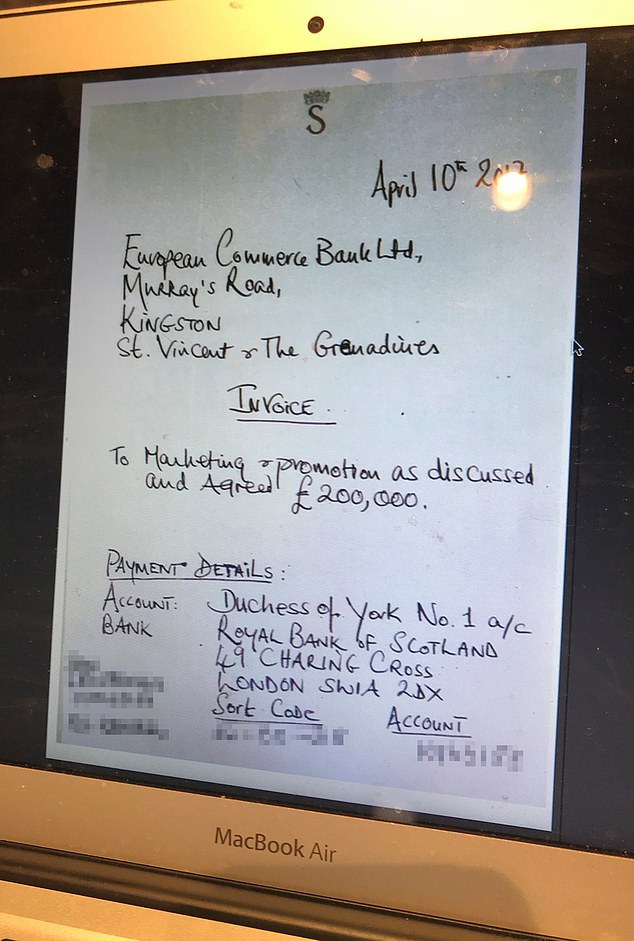 S
April 10th
European Commerce Bank Ltd,
Murray's Road,
KINGSTON
St. Vincent & The Grenadines
INVOICE
To Marketing & promotion as discussed
and Agreed £200,000.
PAYMENT DETAILS:
ACCOUNT: Duchess of York No. 1 a/c
BANK ROYAL BANK OF SCOTLAND
49 CHARING CROSS
LONDON SW1A 2DX
Sort Code ACCOUNT
MacBook Air